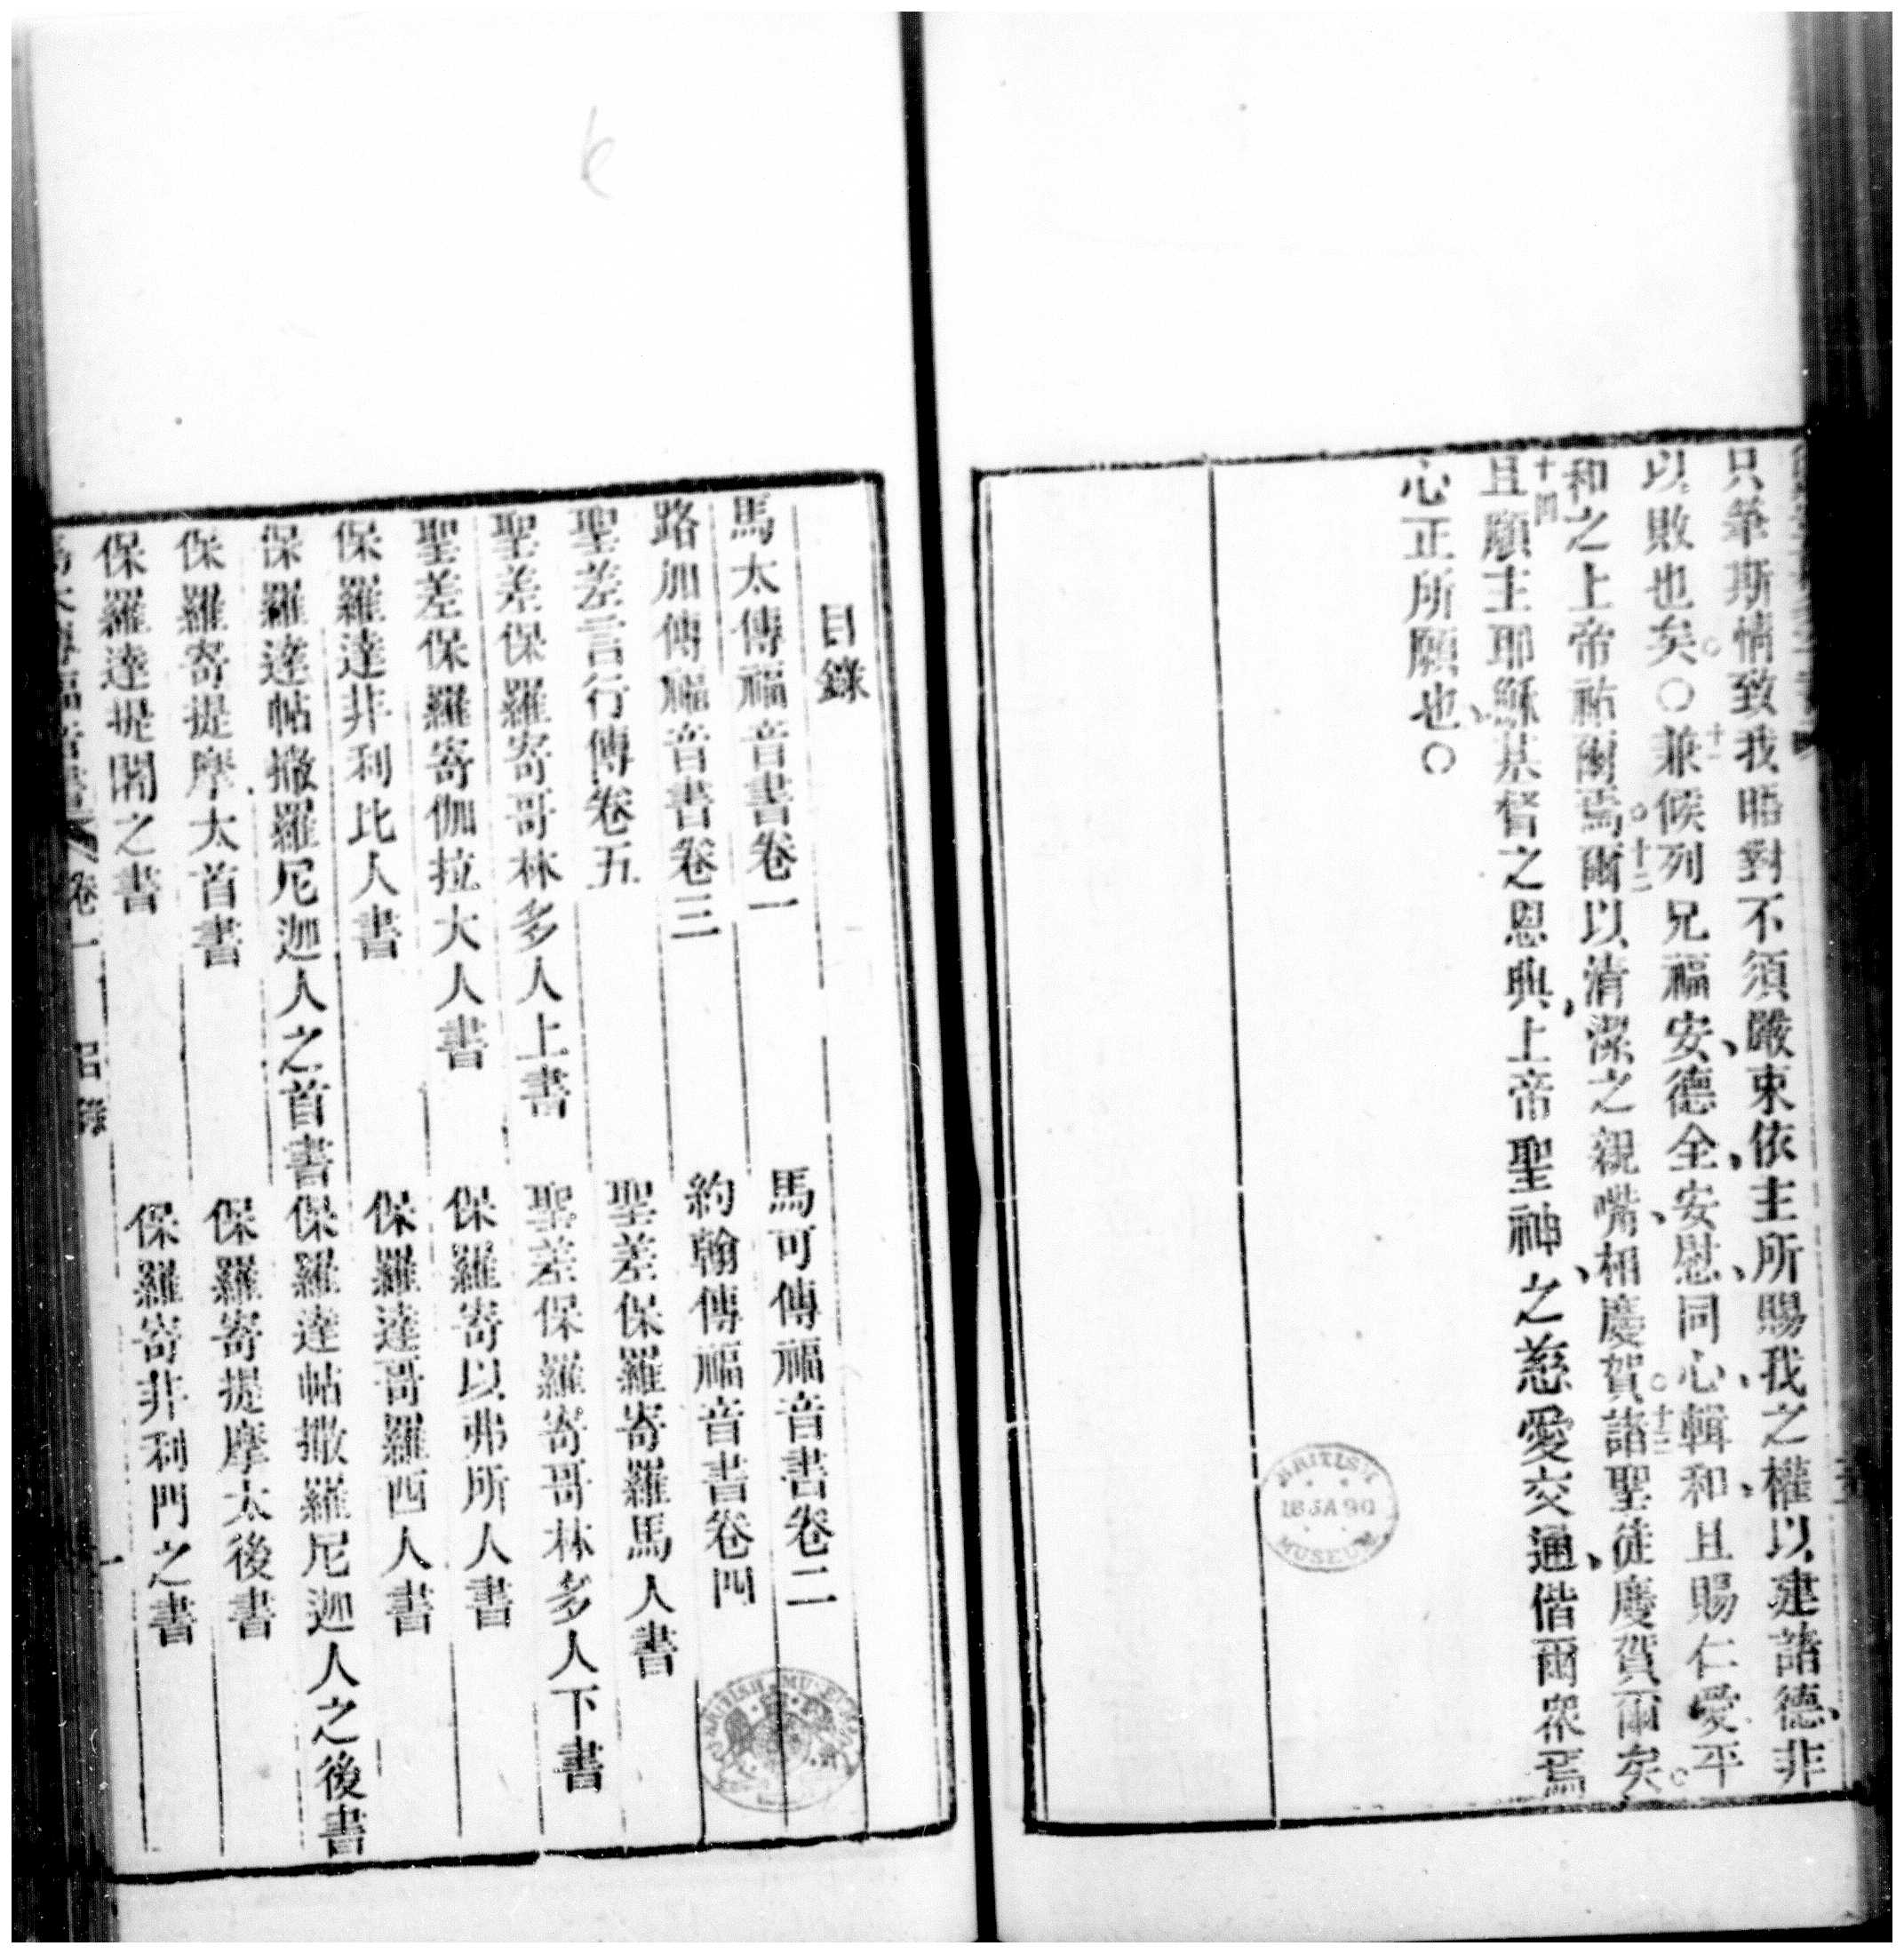 只筆斯情致我晤對不須嚴束依主所賜我之權以建諸德、非
以敗也矣。〇十一兼候列兄福安、德全、安慰、同心、輯和、且賜仁愛平
和之上帝祐爾焉。十二爾以清潔之親嘴、相慶賀。十三諸聖徒慶賀爾矣。
十四且願主耶穌、基督之恩典、上帝聖神、之慈愛交通、偕爾衆焉
心正所願也〇
BRITISH
18 JA 90
MUSEUM
目錄
馬太傳福音書卷一 馬可傳福音書卷二
路加傳福音書卷三 約翰傳福音書卷四
聖差言行傳卷五 聖差保羅寄羅馬人書
聖差保羅寄哥林多人上書 聖差保羅寄哥林多人下書
聖差保羅寄伽拉大人書 保羅寄以弗所人書
保羅達非利比人書 保羅達哥羅西人書
保羅達帖撒羅尼迦人之首書 保羅達帖撒羅尼迦人之後書
保羅寄提摩太首書 保羅寄提摩太後書
保羅達提鬧之書 保羅寄非利門之書
卷一 目錄 一
BRITISH MUSEUM